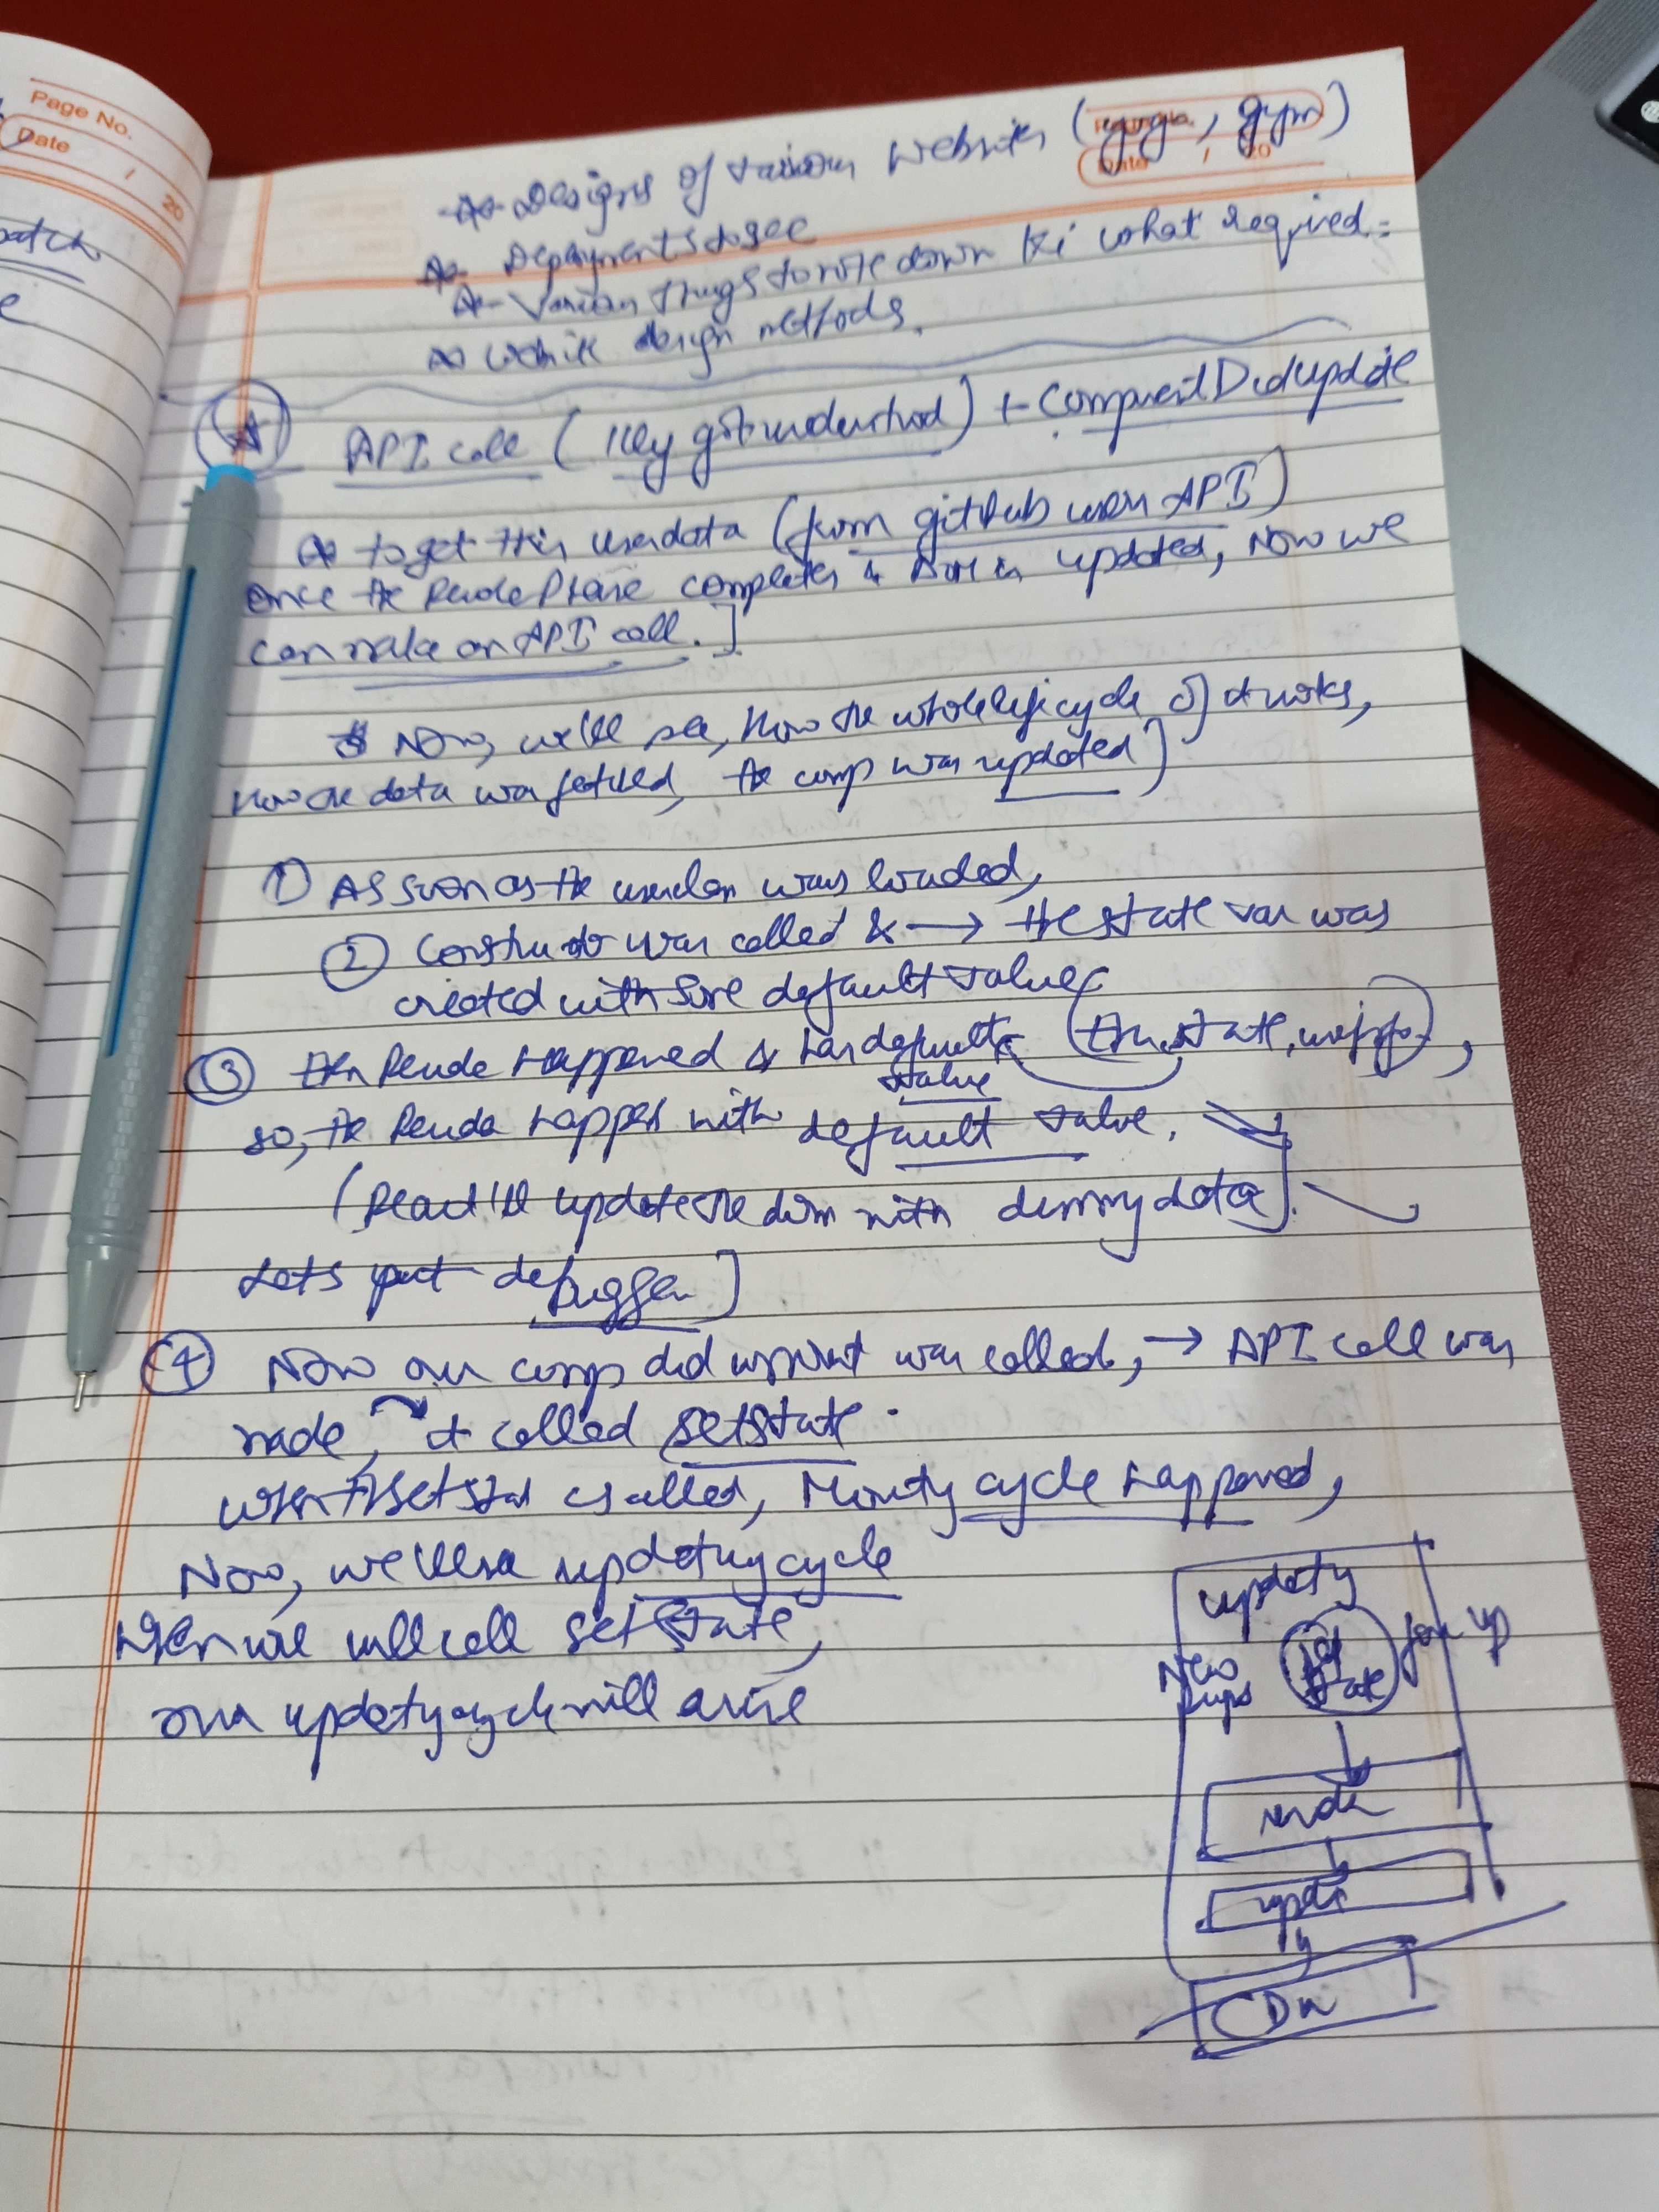 Page No.
Date / 20
Designs of various websites (yoga, gym)
Deployments to see
Various things to note down ki what required.
Website design methods.
API call (key got understood) + Component Did update
to get this userdata (from github users API)
once the Render Phase completes & DOM is updated, Now we
can make an API call.]
Now, we'll see, How the whole lifecycle of it works,
How the data was fetched, the comp was updated)
① As soon as the was loaded,
② Constructor was called & → the state var was
created with some default values
③ then Render Happened & has default (this.state.
value
so, the Render happes with default value.
(React'll update the dom with dummy data).
Lets put debugger]
④ Now our comp did was called, → API call was
made, it called setstate.
when this setstate is called, Mounty cycle Happened,
Now, we'll updatety cycle
When we will call set State,
our updatety cycle will arise
updaty
New props
set state
render
CDU